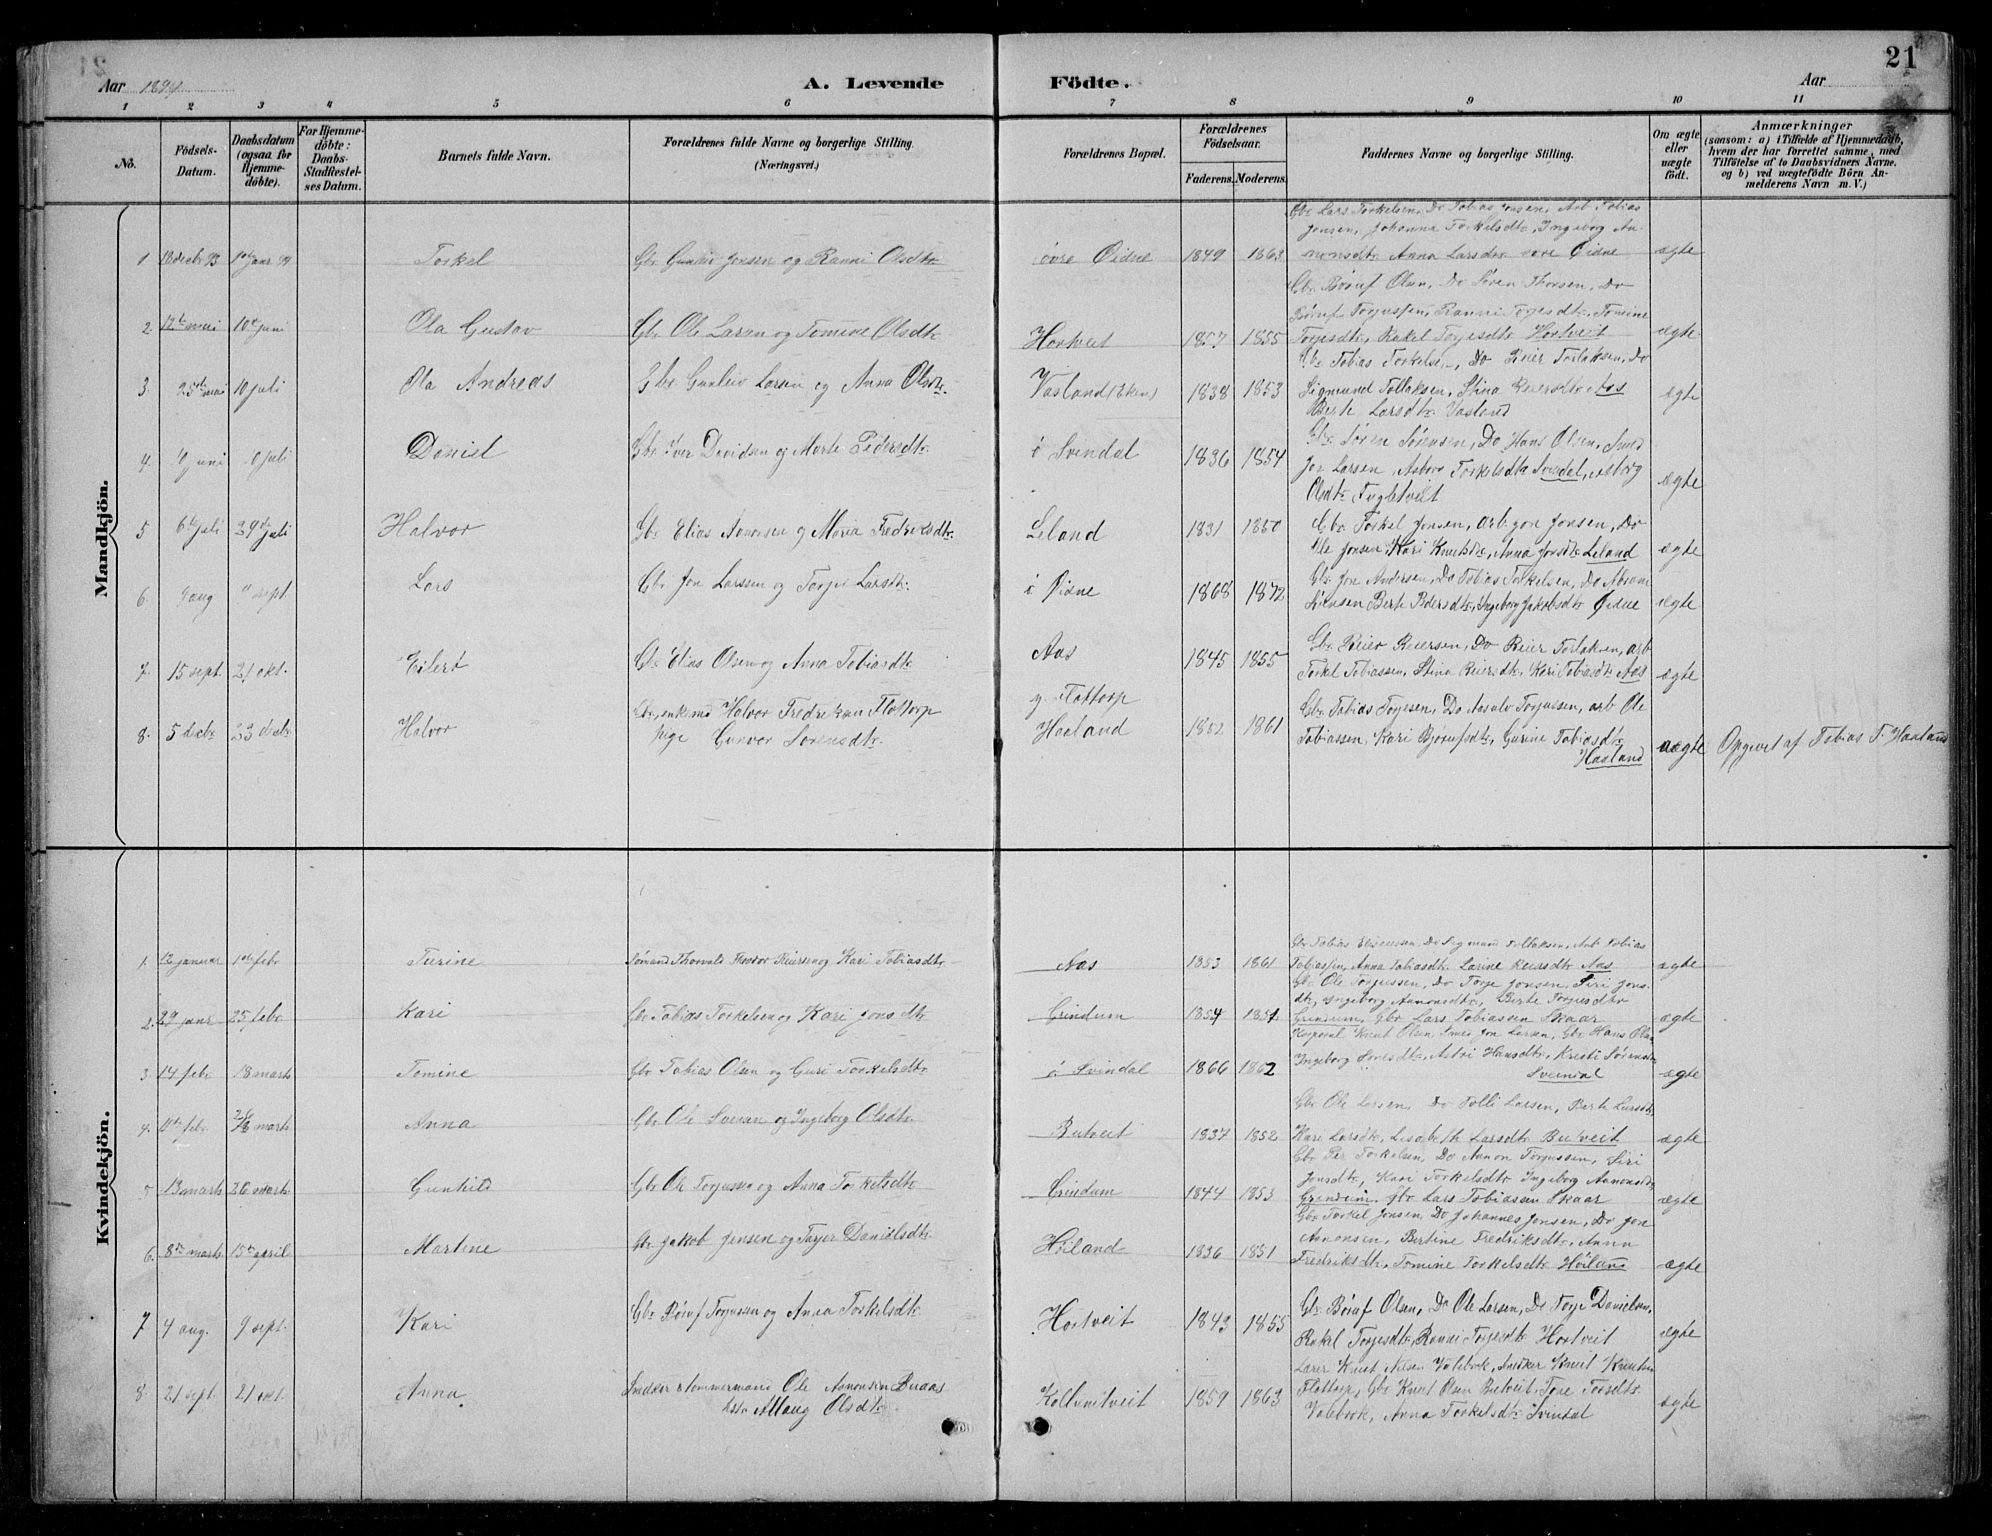 21
Aar 1894
A. Levende Födte.
Aar
1 2 3 4 5 6 7 8 9 10 11
No.
Födsels-Datum.
Daabsdatum (ogsaa for Hjemmedöbte).
For Hjemmedöbte: Daabs-Stadfæstelses Datum.
Barnets fulde Navn.
Forældrenes fulde Navne og borgerlige Stilling. (Næringsvei.)
Forældrenes Bopæl.
Forældrenes Födselsaar.
Faderens. Moderens.
Faddernes Navne og borgerlige Stilling.
Om ægte eller uægte födt.
Anmærkninger
(saasom: a) i Tilfælde af Hjemmedaab, hvem der har forrettet samme, med Tilföielse af to Daabsvidners Navne. og b) ved uægtefödte Börn Anmelderens Navn m. V.)
Mandkjön.
1 18 decbr 93 Torkel Gbr Gunleiv Jonsen og Ranni Olsdtr. övre Öidne 1849 1863 Gbr Lars Torkelsen, Do Tobias Jonsen, Arb Tobias Jonsen, Johanna Torkelsdtr, Ingeborg Anonsdtr Anna Larsdtr Öidne ægte
2. 12te mai 10de juni Ola Gustav Gbr Ole Larsen og Tomine Olsdtr. Hortveit 1857 1855 Gbr Böruf Olsen, Do Sören Thorsen, Do Böruf Torjussen, Ranni Torjesdtr, Tomine Torjesdtr, Rakel Torjesdtr Hortveit ægte
3 25de mai 10 juli Ola Andreas Gbr Gunleiv Larsen og Anna Olsdtr. Vasland (Eken) 1838 1853 Gbr Tobias Torkelsen, Do Reier Torlaksen, Do Sigmund Tollaksen, Stina Reiersdtr Aas Berte Larsdtr Vasland ægte
4. juni juli Daniel Gbr Iver Davidsen og Marte Pedersdtr. i Svindal 1836 1854 Gbr Sören Sörensen, Do Hans Olsen, Smed Jon Larsen, Asborg Torkelsdtr Svindal, Asborg Olsdtr Fugletveit ægte
5 6te juli 29de juli Halvor Gbr Elias Aanonsen og Maria Fredriksdtr. Leland 1831 1850 Gbr Torkel Jonsen, arb Jon Jonsen, Do Ole Jonsen, Kari Knutsdtr, Anna Jonsdtr Leland ægte
6. 9 aug sept. Lars Gbr Jon Larssen og Torjer Larsdtr. i Öidne 1868 1872 Gbr Jon Andersen, Do Tobias Torkelsen, Do Abram Sörensen Berte Pedersdtr, Ingeborg Jakobsdtr Öidne ægte
7. 15 sept. 21 okt. Eilert Gbr Elias Olsen og Anna Tobiasdtr Aas 1845 1855 Gbr Reier Reiersen, Do Reier Torlaksen, arb Torkel Tobiassen, Stina Reiersdtr, Kari Tobiasdtr Aas ægte
8. 5 decbr 23 decbr Halvor Gbr, enkemd Halvor Fredriksen Flottorp pige Gunvor Sorensdtr. g. Flottorp Haaland 1852 1861 Gbr Tobias Torjesen, Do Aasulv Torjussen, arb Ole Tobiassen, Kari Bjorufsdtr, Gurine Tobiasdtr Haaland uægte Opgivet af Tobias T. Haaland
Kvindekjön.
1. 12 januar febr Turine Sömand Thorvald Reiersen og Kari Tobiasdtr Aas 1853 1861 Gbr Tobias Eliasessen, Do Sigmund Tollaksen, Arb Tobias Tobiassen, Anna Tobiasdtr Larine Reiersdtr Aas ægte
2. 29 janr 25 febr Kari Gbr Tobias Torkelsen og Kari Jonsdtr Grindum 1854 Gbr Ole Torjussen, Do Torje Jonsen, Siri Jonsdtr, Ingeborg Aanonsdtr, Berte Torjusdtr Grindum, Gbr Lars Tobiassen Skaar ægte
3 14 febr 18 marts Tomine Gbr Tobias Olsen og Guri Torkelsdtr i Svindal 1866 1862 Korporal Knut Olsen Smed Jon Larsen, Gbr Hans Olsen Ingeborg Larsdtr, Astri Hansdtr, Kristi Sörensdtr Sveindal ægte
4. febr marts Anna Gbr Ole Svensen og Ingeborg Olsdtr. Butveit 1837 1852 Gbr Ole Larsen, Do Tolli Larsen, Berte Larsdtr Kari Larsdtr, Lisabeth Larsdtr Butveit ægte
5 13 marts 26 marts Gunhild Gbr Ole Torjussen og Anna Torkelsdtr Grindum 1844 1853 Gbr Per Torkelsen, Do Aanon Torjussen, Siri Jonsdtr, Kari Torkelsdtr Ingeborg Aanonsdtr Grindum, Gbr Lars Tobiassen Skaar ægte
6. 8de marts 15de april Martine Gbr Jakob Jensen og Tayer Danielsdtr. Höiland 1836 1851 Gbr Torkel Jonsen, Do Johannes Jonsen, Do Jon Aanonsen, Bertine Fredriksdtr, Anna Fredriksdtr, Tomine Torkelsdtr Höiland ægte
7 4 aug. 9 sept. Kari Gbr Böruf Torjussen og Anna Torkelsdtr Hortveit 1843 1855 Gbr Böruf Olsen, Do Ole Larsen, Do Torje Danielsen, Rakel Torjesdtr, Ranni Torjesdtr Hortveit ægte
8. 21 sept. 21 okt. Anna. Snedker &tömmermand Ole Aanonsen Buaas Aslaug Olsdtr Kollumtveit 1859 1863 Lærer Knut Nilsen Valebrok, Snedker Knut Knutsen Flottorp, Gbr Knut Olsen Butveit, Tone Torsdtr Valebrok, Anna Torkelsdtr Svindal ægte